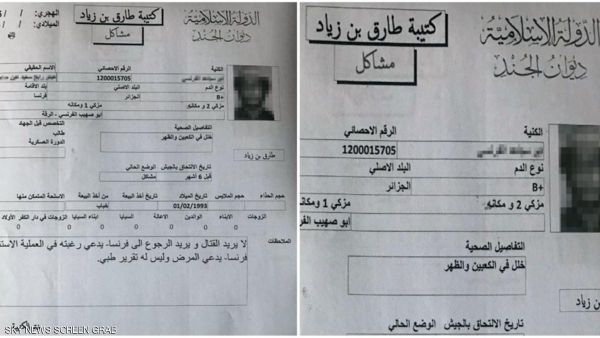 الهجري: / /
الميلادي: / /
كتيبة طارق بن زياد
مشاكل
الدولة الإسلامية
ديوان الجند
الكنية
الرقم الاحصائي
الاسم الحقيقي
1200015705
نوع الدم
البلد الاصلي
بلد الاقامة
B+
الجزائر
فرنسا
مزكي 2 و مكانه
مزكي 1 ومكانه
ابو صهيب الفرنسي - الرقة
التفاصيل الصحية
التخصص قبل الجهاد
خلل في الكعبين والظهر
طالب
الدورة العسكرية
طارق بن زياد
تاريخ الالتحاق بالجيش
الوضع الحالي
قبل 6 أشهر
مشاكل
حجم الحذاء
حجم الملابس
تاريخ الميلاد
تاريخ أخذ البيعة
الاسلحة المتمكن منها
01/02/1993
الزوجات
الابناء
الوالدين
الاعالة
السبايا
ابناء السبايا
الزوجات في دار الكفر
الملاحظات
لا يريد القتال و يريد الرجوع الى فرنسا- يدعي رغبته في العملية
فرنسا- يدعي المرض وليس له تقرير طبي.
SKY NEWS SCREEN GRAB
كتيبة طارق بن زياد
مشاكل
الدولة الإسلامية
ديوان الجند
الكنية
الرقم الاحصائي
1200015705
نوع الدم
البلد الاصلي
B+
الجزائر
مزكي 2 و مكانه
مزكي 1 ومكانه
ابو صهيب
التفاصيل الصحية
خلل في الكعبين والظهر
بن زياد
تاريخ الالتحاق بالجيش
الوضع الحالي